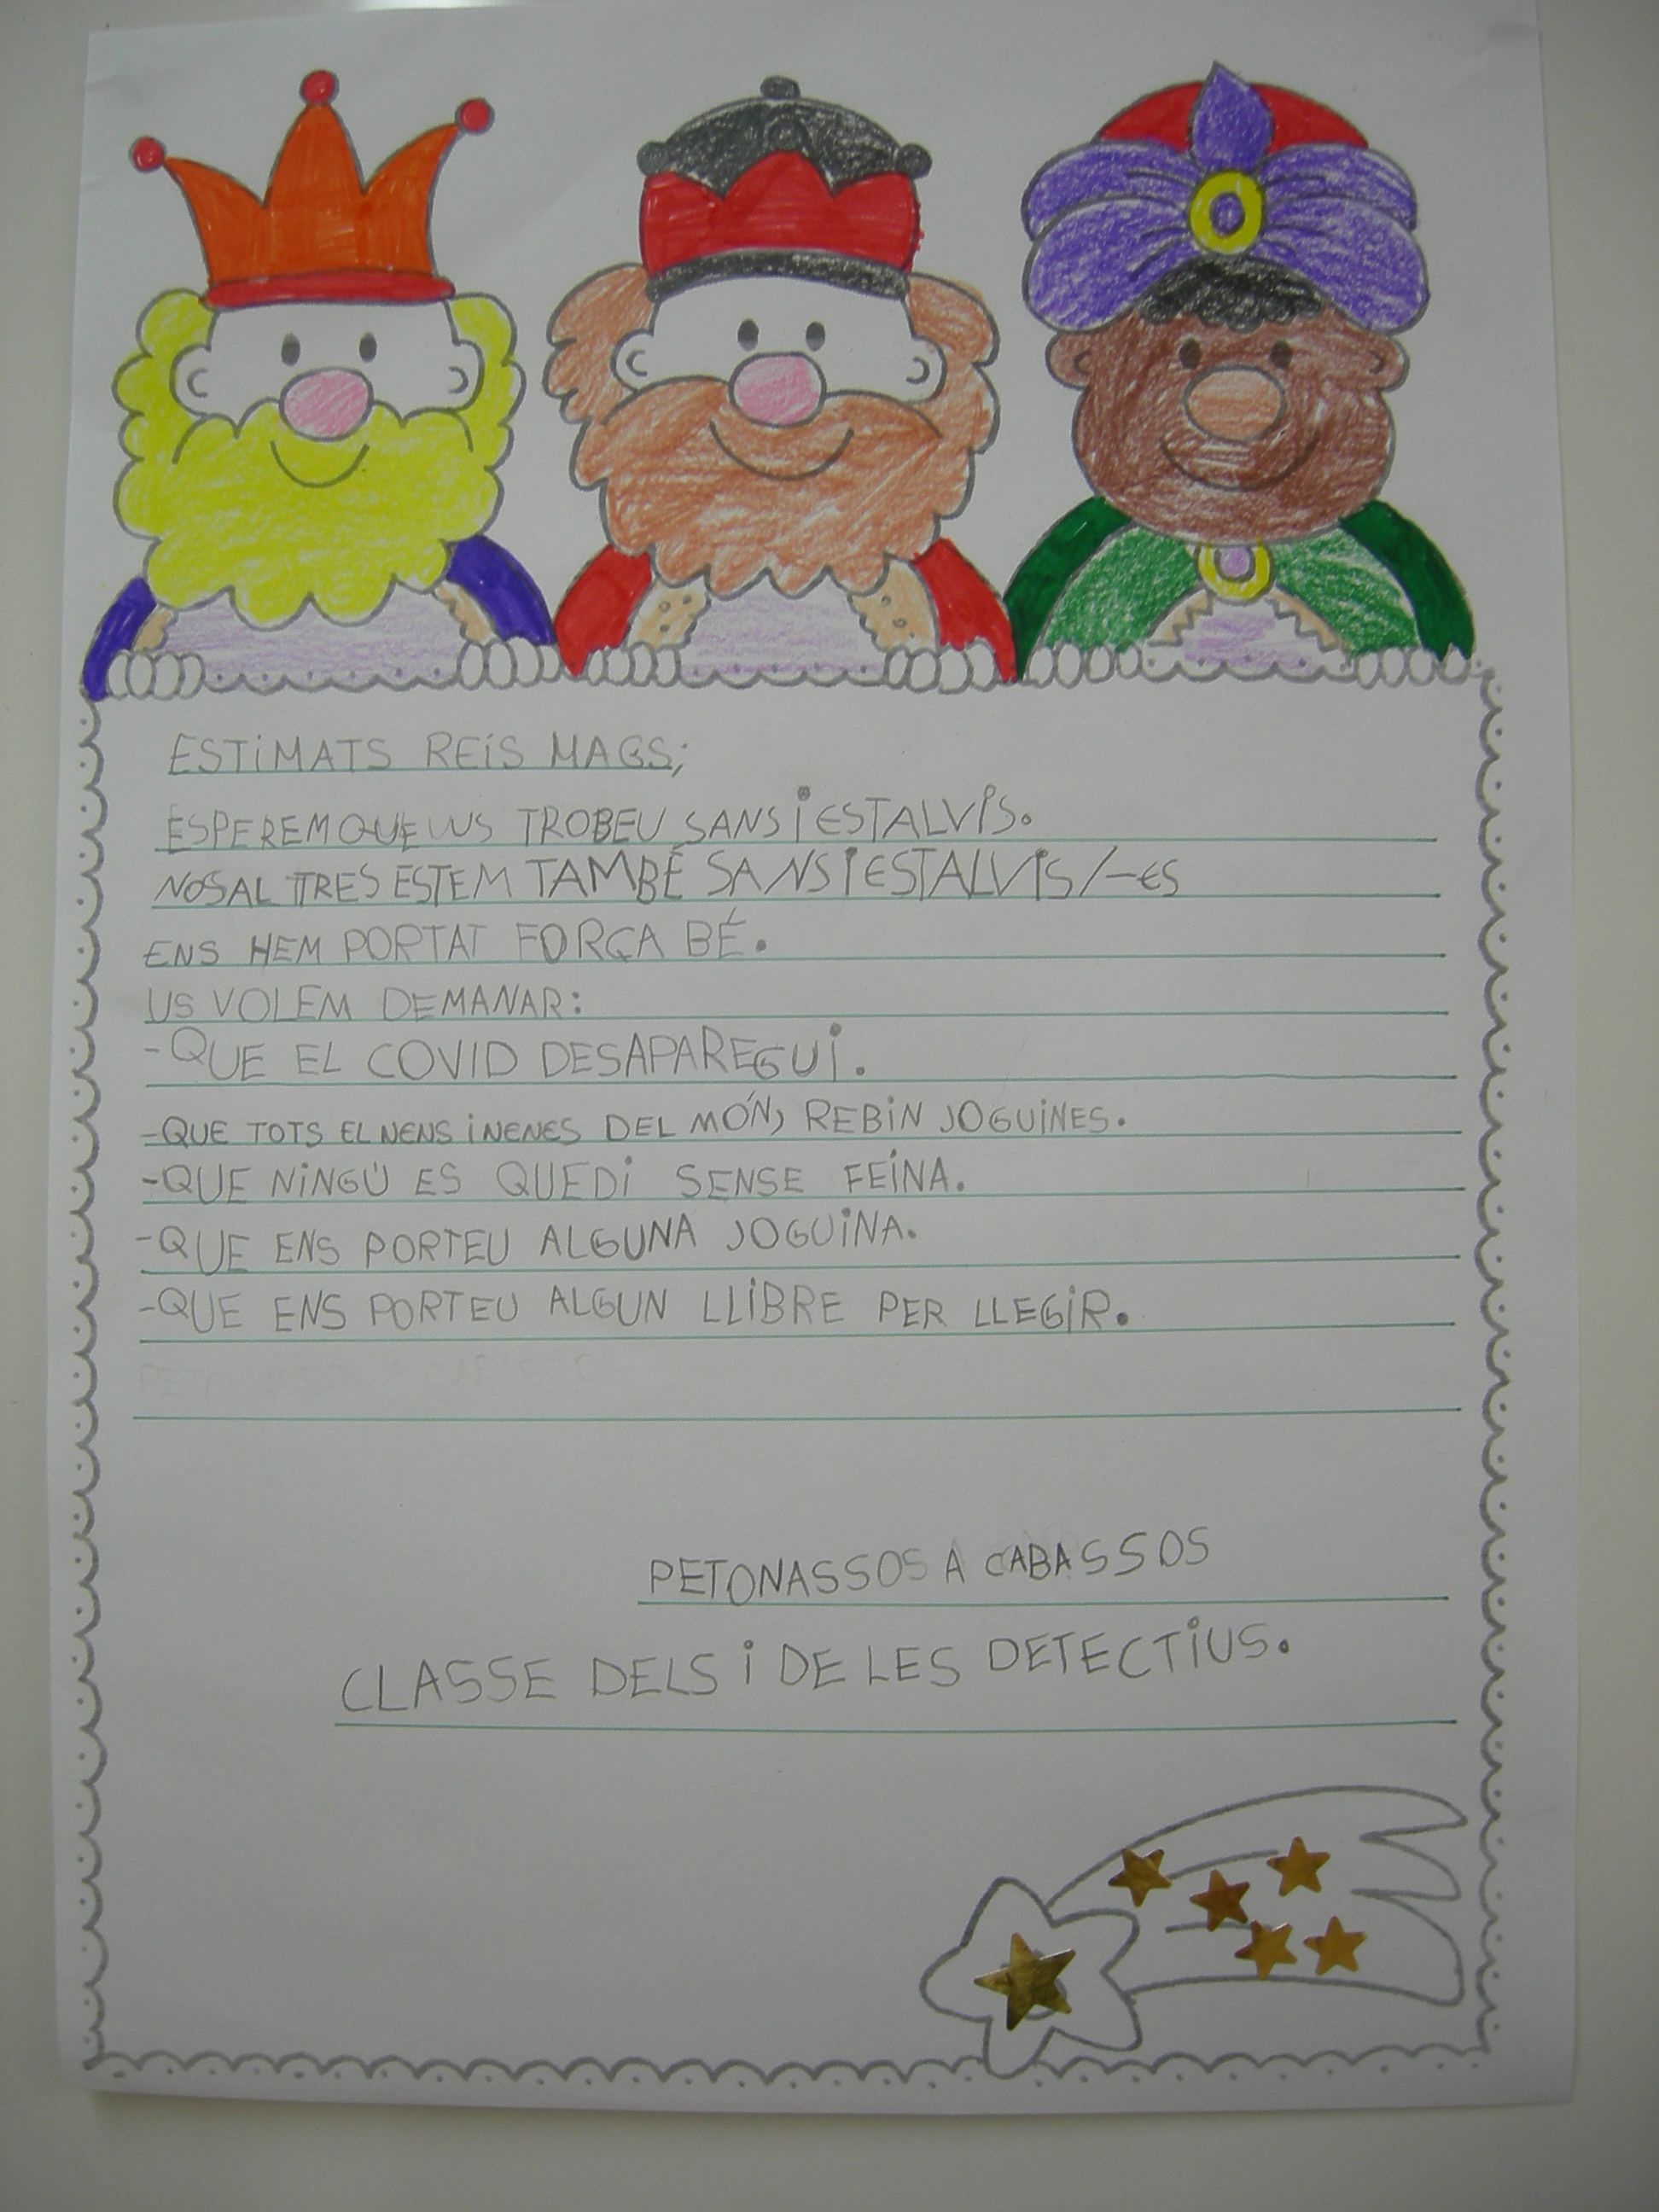 ESTIMATS REIS MAGS;
ESPEREM QUE US TROBEU SANS I ESTALVIS.
NOSALTTRES ESTEM TAMBÉ SANS I ESTALVIS/-ES
ENS HEM PORTAT FORÇA BÉ.
US VOLEM DEMANAR:
-QUE EL COVID DESAPAREGUI.
-QUE TOTS EL NENS I NENES DEL MÓN, REBIN JOGUINES.
-QUE NINGÚ ES QUEDI SENSE FEINA.
-QUE ENS PORTEU ALGUNA JOGUINA.
-QUE ENS PORTEU ALGUN LLIBRE PER LLEGIR.
PETONASSOS A CABASSOS
CLASSE DELS I DE LES DETECTIUS.